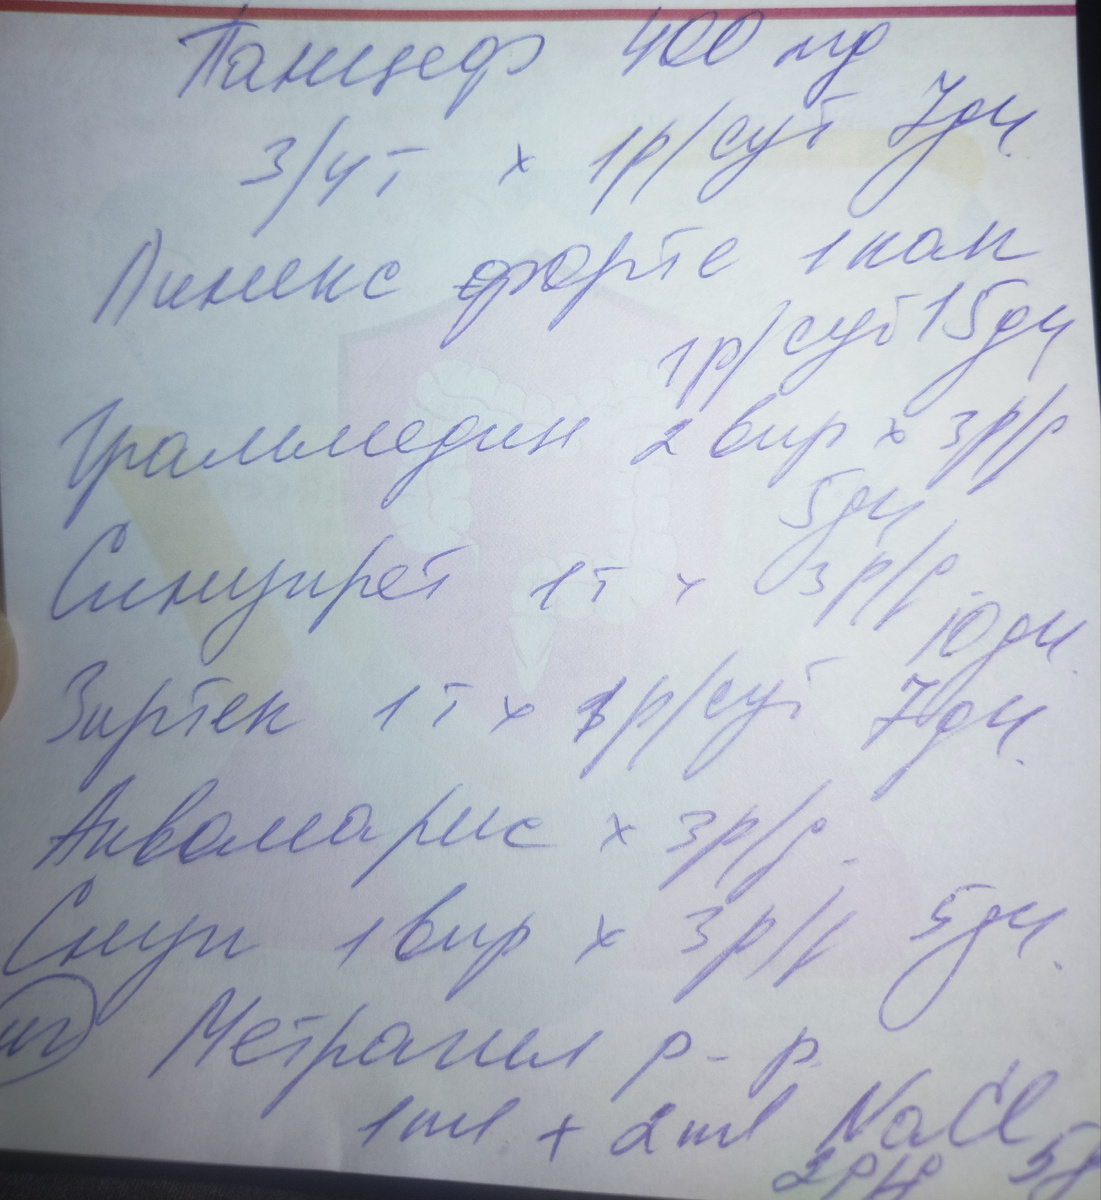 Панцеф 400 мг
3/4 т x 1р/сут 7дн.
Линекс форте 1 кап
1р/сут 15дн
Граммедин 2 впр x 3р/д
5дн
Синупрет 1т x 3р/д.
10дн.
Зиртек 1т x 1р/сут 7дн.
Аквамарис x 3р/д.
Снуп 1 впр x 3р/д 5дн.
Метрагил р-р
1ml + 2ml NaCl
2р/д 5д